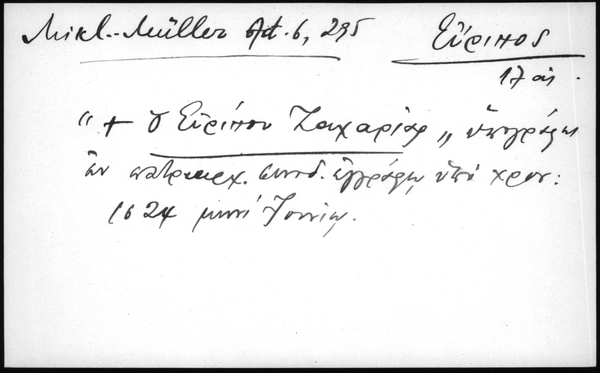 Mikl.-Müller Act. 6, 295
Εὔριπος
17 αἰ.
"+ ὁ Εὐρίπου Ζαχαρίας" ὑπογράφει
ἐν πατριαρχ. συνοδ. ἐγγράφῳ ὑπὸ χρον:
1624 μηνὶ Ἰουνίῳ.